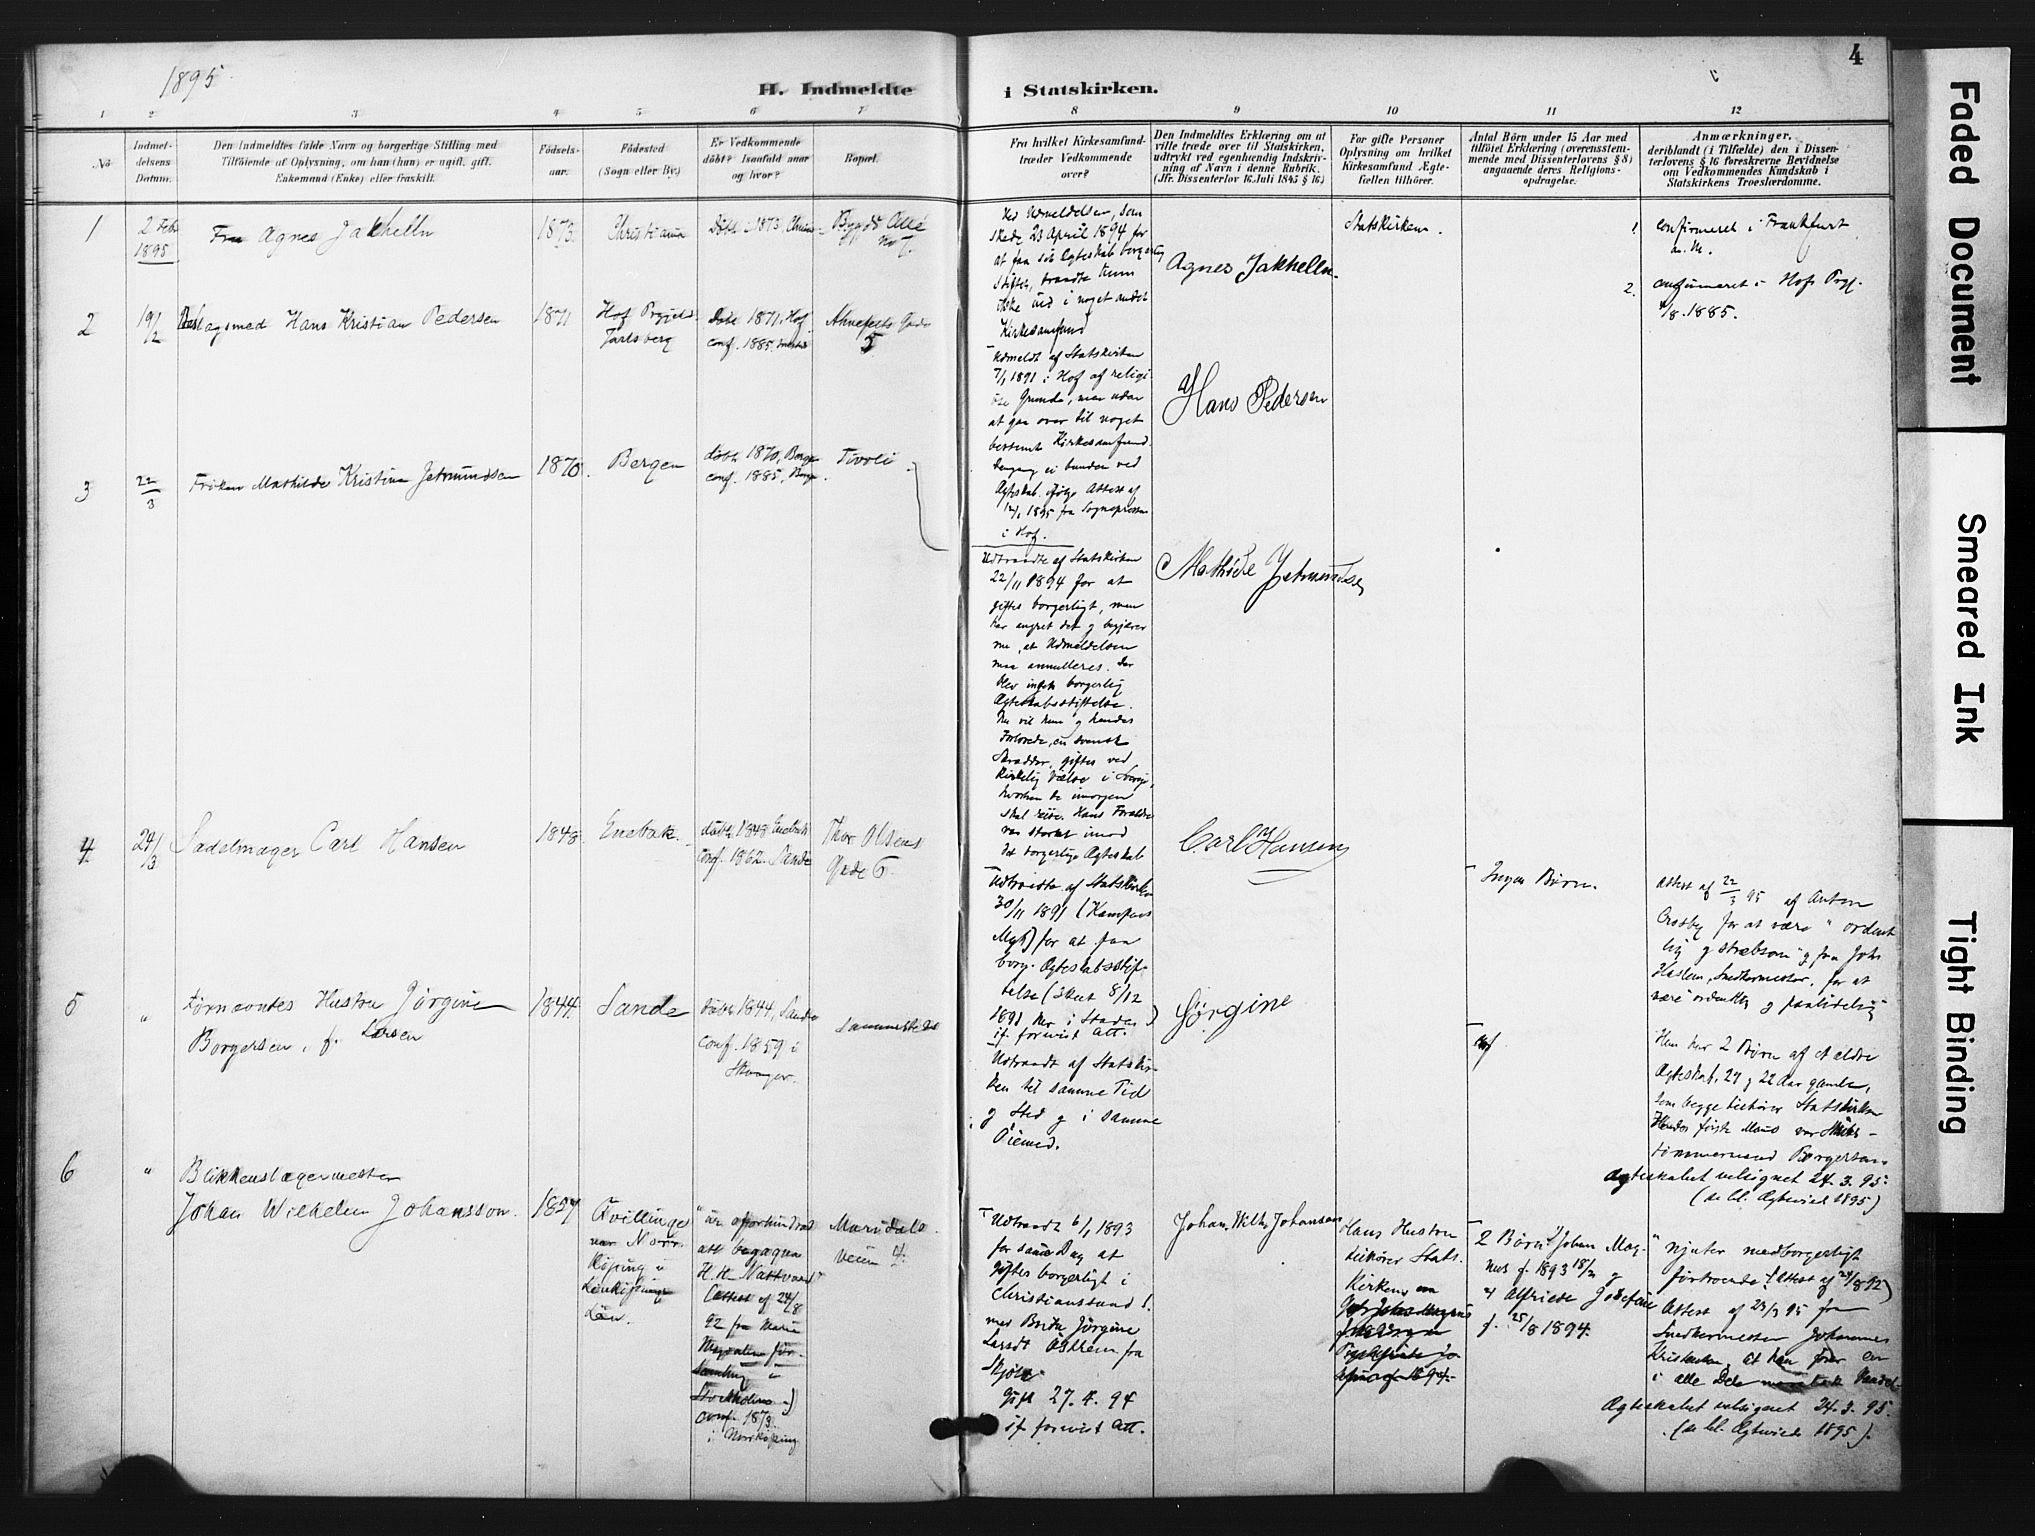 1895
4
H. Indmeldte i Statskirken.
1 2 3 4 5 6 7 8 9 10 11 12
No
Indmel-
delsens
Datum.
Den Indmeldtes fulde Navn og borgerlige Stilling med
Tilføiende af Oplysning, om han (hun) er ugift, gift,
Enkemand (Enke) eller fraskilt.
Fødsels-
aar.
Fødested
(Sogn eller By.)
Er Vedkommende
døbt? Isaafald naar
og hvor?
Bopæl.
Fra hvilket Kirkesamfund-
træder Vedkommende
over?
Den Indmeldtes Erklæring om at
ville træde over til Statskirken,
udtrykt ved egenhændig Indskriv-
ning af Navn i denne Rubrik.
(Jfr. Dissenterlov 16. Juli 1845 § 16.)
For gifte Personer
Oplysning om hvilket
Kirkesamfund Ægte-
fællen tilhører.
Antal Børn under 15 Aar med
tilføiet Erklæring (overensstem-
mende med Dissenterlovens § 8)
angaaende deres Religions-
opdragelse.
Anmærkninger,
deriblandt (i Tilfælde) den i Dissen-
terlovens § 16 foreskrevne Bevidnelse
om Vedkommendes Kundskab i
Statskirkens Troeslærdomme.
1
2 Feb
1895
Fru Agnes Jakhelln
1873.
Christiania
Døbt i 1873,
Bygdø Allé
no 7.
Ved Udmeldelsen, som
skede 23 April 1894 for
at faa sit Ægteskab borgerlig
stiftet, traadte hun
ikke ind i noget andet
Kirkesamfund
Agnes Jakhelln.
Statskirken.
1. confirmeret i Frankfurt
a. M.
2
19/2
Hans Kristian Pedersen
1871
Hof Prgjeld
Jarlsberg
Døbt 1871, Hof
conf. 1885,
Gade
5
Udmeldt af Statskirken
7/1 1891 i Hof af religi
øse Grunde, men uden
at gaa over til noget
bestemt Kirkesamfund.
ei bunden ved
Ægteskab ifølge Attest af
1895 fra Sognepresten
i Hof.
Hans Pedersen
2. confirmeret i Hofs Prgj.
/8. 1885.
3
22/3
Frøken Mathilde Kristine Jetmundsen
1870.
Bergen
døbt 1870, Bergen
conf. 1885, Bergen.
Tivoli.
Udtraadte af Statskirken
22/11 1894 for at
giftes borgerligt, men
har angret det og begjærer
nu, at Udmeldelsen
maa annulleres. Der
blev ingen borgerlig
Ægteskabsstiftelse.
Nu vil hun og hendes
Forlovede, en svensk
Skrædder, giftes ved
kirkelig Vielse i Sverige,
hvorhen de imorgen
skal reise. Hans Forældre
var stærkt imod
det borgerlige Ægteskab
Mathilde Jetmundsen
4
24/3
Sadelmager Carl Hansen
1848.
Enebak.
døbt 1848 Enebak
conf. 1862. Sande
Thor Olsens
Gade 6.
Udtraadte af Statskirken
30/11 1891 (Kampens
Mgh) for at faa
borg. Ægteskabsstif-
telse (skeet 8/12
1891 her i Staden)
if. forevist Att.
Carl Hansen
Ingen Børn.
Attest af 22/3 95 af Anton
for at være "ordent
lig og stræbsom" og fra Johs
Haslem, Snedkermester, for at
være "ordentlig og paalidelig"
5
"
Hustru Jørgine
Borgersen, f. Larsen
1844.
Sande
døbt 1844, Sande
conf. 1859 i
Skoger.
sammesteds
Udtraadt af Statskir-
ken til samme Tid
og Sted og i samme
Øiemed.
Jørgine
Hun har 2 Børn af et ældre
Ægteskab, 27 og 22 Aar gamle,
som begge tilhører Statskirken
Hendes første Mand var Skibs-
tømmermand Borgersen.
Ægteskabet velsignet 24. 3. 95.
(se bl. Ægtevied 1895)
6
"
Blikkenslagermester
Johan Wilhelm Johansson.
1857
Qvillinge
Norr-
köping i
Linköpings
län.
"är oförhindrad
att begagna
H. H. Nattvard"
(Attest af 24/8
92 fra Maria
Magdalena för-
samling i
Stockholm.)
conf. 1873.
i Norrköping
Maridals-
veien 4.
Udtraadt 6/1 1893
for samme Dag at
giftes borgerligt i
Christianssund S.
med Jørgine
Larsdt fra
Gift 27. 4. 94
if. forevist Att.
Johan. Wilh. Johansen
Hans Hustru
tilhører Stats-
kirken
2 Børn: Johan Mag-
nus f. 1893 18/3 og
Alfriede Josefine
f. 25/8 1894.
"njuter medborgerligt
förtroende" (Attest af 24/8 92)
Attest af 23/3 95 fra
Snedkermester Johannes
Kristensen, at han fører en
i alle Dele Vandel
Ægteskabet velsignet 24. 3. 95.
(se bl. Ægteviede 1895).
Faded Document
Smeared Ink
Tight Binding